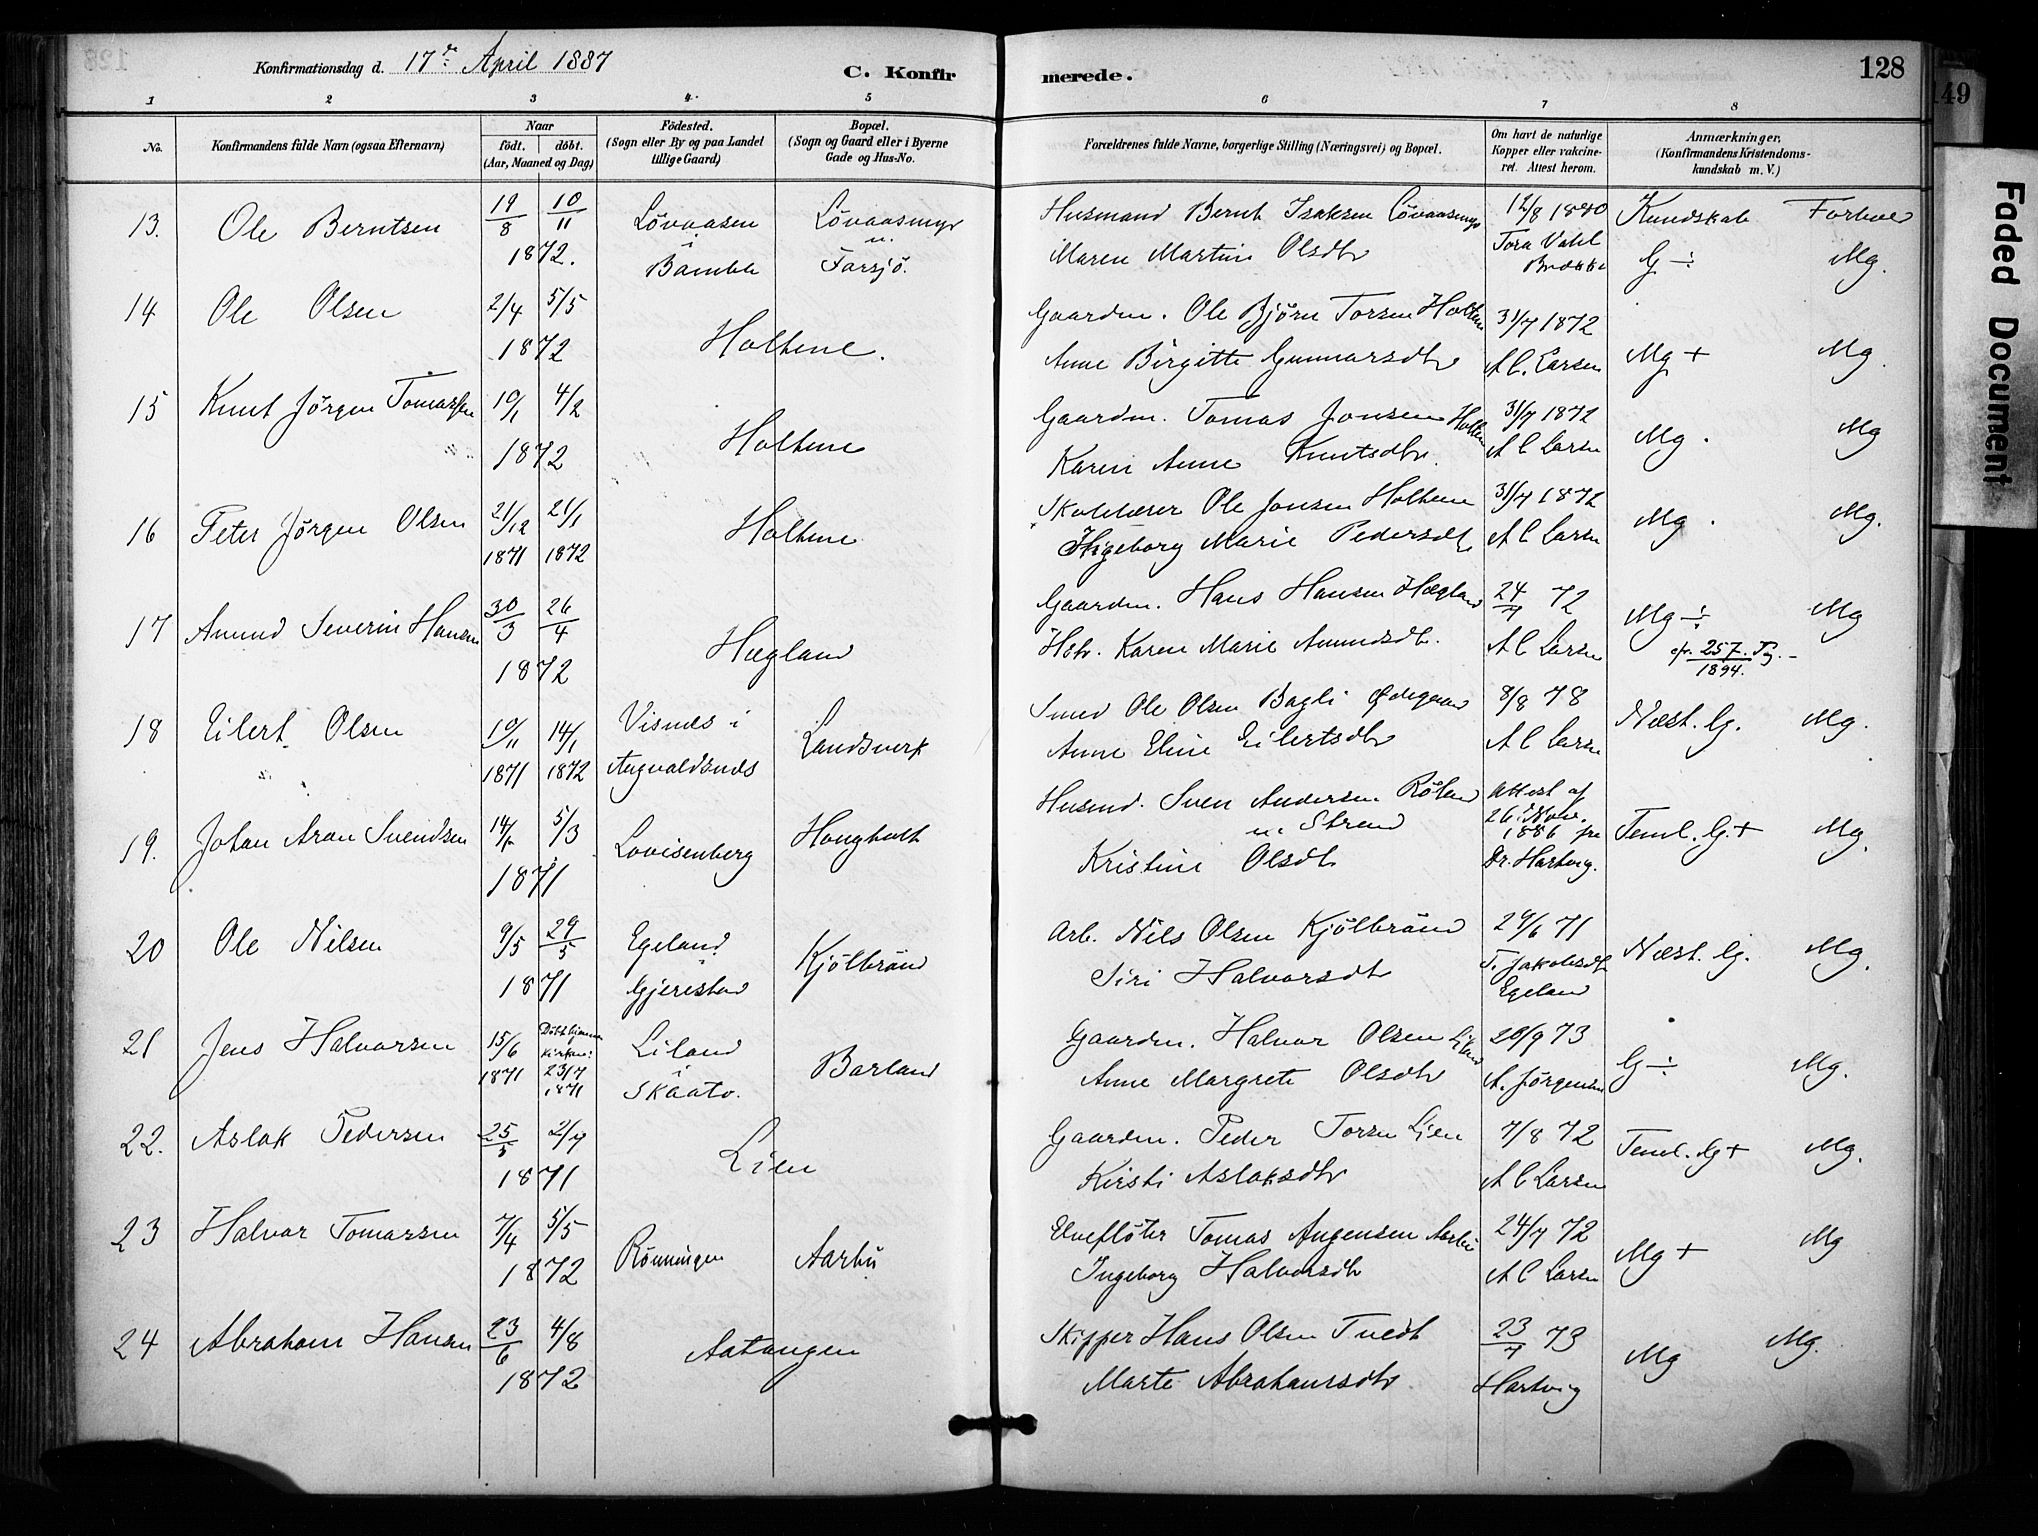 Konfirmationsdag d. 17de April 1887
C. Konfirmerede.
128
149
Faded Document
1 2 3 4. 5 6 7 8
No.
Konfirmandens fulde Navn (ogsaa Efternavn)
Naar
født. døbt.
(Aar, Maaned og Dag)
Födested.
(Sogn eller By og paa Landet
tillige Gaard)
Bopæl.
(Sogn og Gaard eller i Byerne
Gade og Hus-No.
Forældrenes fulde Navne, borgerlige Stilling (Næringsvei) og Bopæl.
Om havt de naturlige
Kopper eller vakcine-
ret. Attest herom.
Anmærkninger,
(Konfirmandens Kristendoms-
kundskab m. V.)
13. Ole Berntsen 19/8 10/11 Løvaasen Løvaasmyr Husmand Bernt Isaksen Løvaasmyr 12/8 1880 Kundskab Forhol
1872. i Bamble u. Farsjø. Maren Martine Olsdtr Tora Vahl G ÷ Mg.
14 Ole Olsen 2/4 5/5 Gaardm. Ole Bjørn Torsen Holtene 31/7 1872
1872 Holtene. Anne Birgitte Gunnarsdtr A C. Larsen Mg + Mg.
15 Knut Jørgen Tomassen 10/1 4/2 Gaardm. Tomas Jonsen Holtene 31/7 1872
1872 Holtene Karen Anne Knutsdtr. A C Larsen Mg. Mg
16 Peter Jørgen Olsen 21/12 21/1 Holtene Skolelærer Ole Jonsen Holtene 31/7 1872 Mg. Mg.
1871 1872 Ingeborg Marie Pedersdtr A C Larsen
17 Amund Severin Hansen 30/3 26/4 Gaardm. Hans Hansen Hægland 24/7 72 Mg ÷ Mg
1872 Hægland Hstr. Karen Marie Amundsdtr. A C Larsen cfr. 257. Pg. 1894.
18 Eilert Olsen 10/11 14/1 Visnes i Landsverk Smed Ole Olsen Bagli Ødegaard 8/8 78 Næst. G. Mg.
1871 1872 Augvaldsnes Anne Eline Eilertsdtr A C Larsen
19. Johan Aron Svendsen 5/3 Lovisenberg Hougholt Husmd. Sven Andersen u. Strand Attest af
1871 Kristine Olsdtr 26. Novr. 1886 fra Dr. Hartvig. Teml. G. + Mg.
20 Ole Nilsen 9/5 29/5 Egeland Kjølbrønd Arb. Nils Olsen Kjølbrønd 29/6 71 Næst. G. Mg.
1871 Gjerestad Siri Halvorsdtr T. Jakobsdtr Egeland
21 Jens Halvorsen 15/6 Døbt hjemme Liland Barland Gaardm. Halvor Olsen Liland 20/9 73
1871 Kirken: 23/7 1871 i Skaatø. Anne Margrete Olsdtr A. Jørgensen G ÷ Mg.
22. Aslak Pedersen 25/5 2/7 Gaardm. Peder Torsen Lien 7/8 72 Teml. G + Mg.
1871 Lien Kirsti Aslaksdtr A C Larsen
23 Halvor Tomassen 7/4 5/5 Rønningen Aarbu Elvefløter Tomas Augensen Aarbu 24/7 72 Mg + Mg
1872 Ingeborg Halvorsdtr A C Larsen
24 Abraham Hansen 23/6 4/8 Aatangen Skipper Hans Olsen Tvedt 23/7 73 Mg Mg.
1872 Marte Abrahamsdtr Hartvig